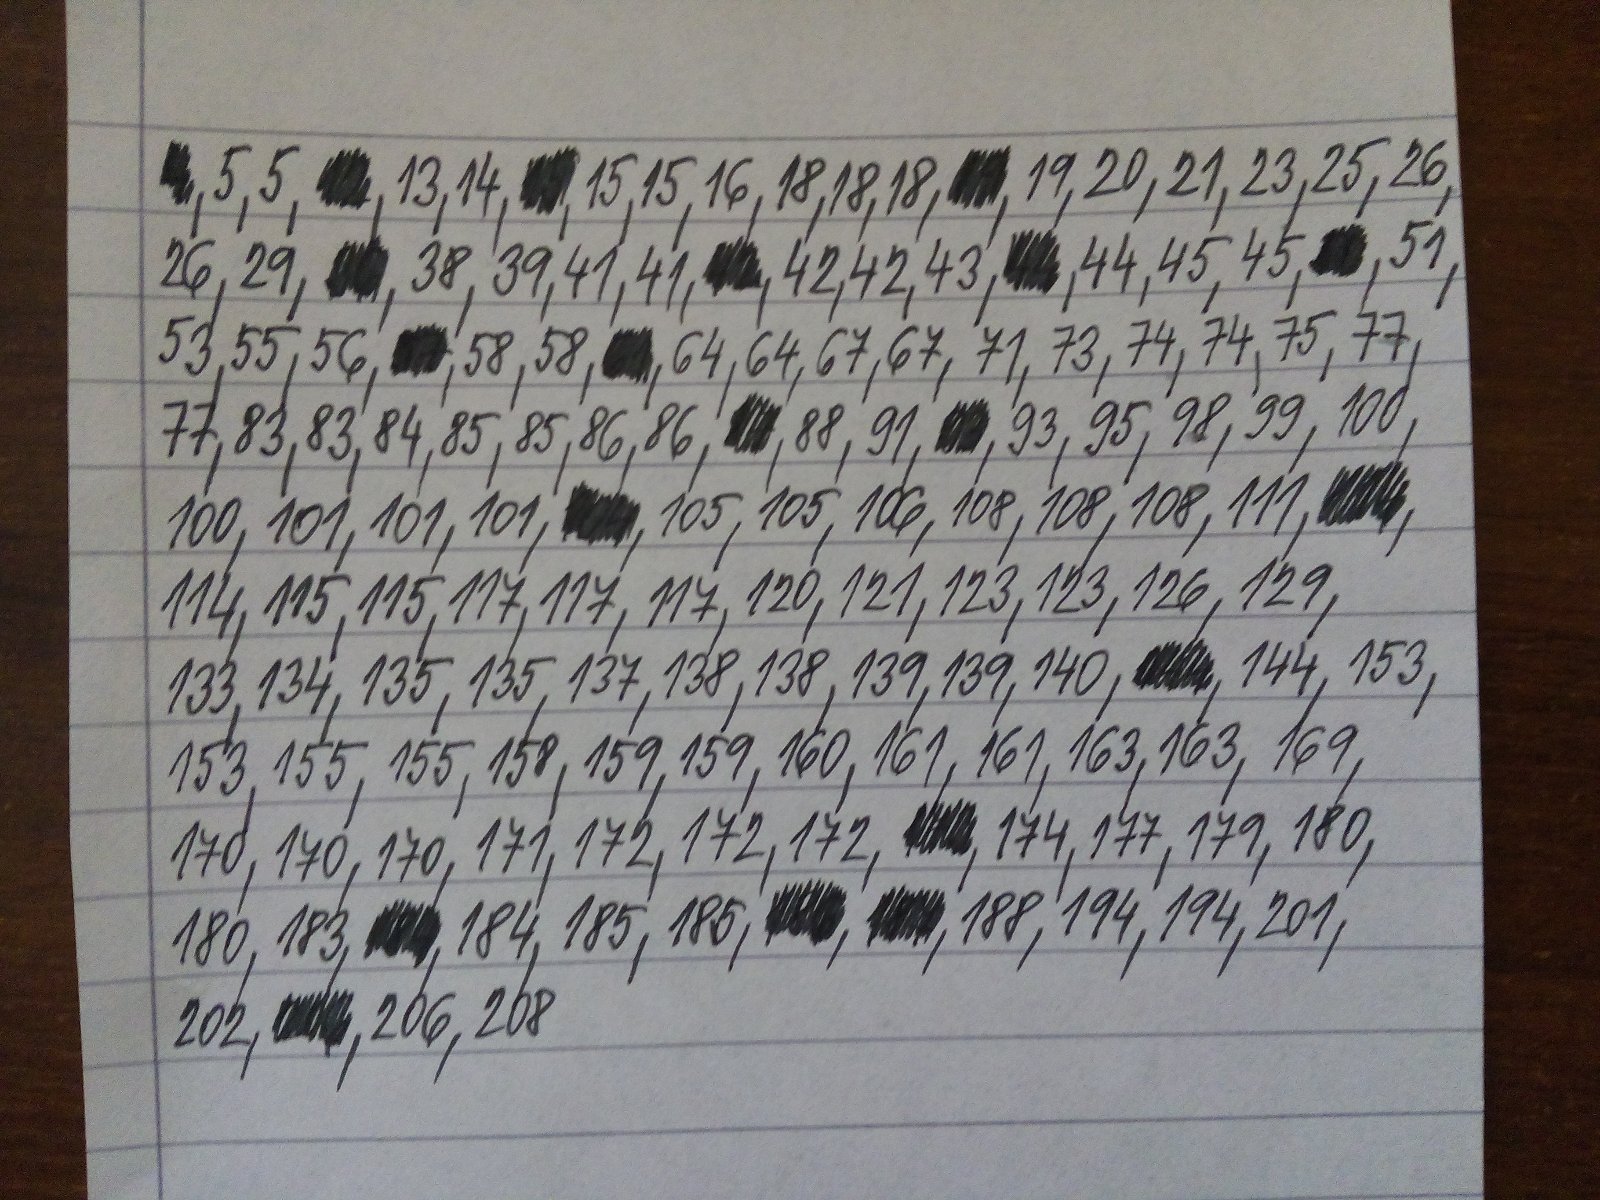 , 5, 5, , 13, 14, , 15, 15, 16, 18, 18, 18, , 19, 20, 21, 23, 25, 26,
26, 29, , 38, 39, 41, 41, , 42, 42, 43, , 44, 45, 45, , 51,
53, 55, 56, , 58, 58, , 64, 64, 67, 67, 71, 73, 74, 74, 75, 77,
77, 83, 83, 84, 85, 85, 86, 86, , 88, 91, , 93, 95, 98, 99, 100,
100, 101, 101, 101, , 105, 105, 106, 108, 108, 108, 111, ,
114, 115, 115, 117, 117, 117, 120, 121, 123, 123, 126, 129,
133, 134, 135, 135, 137, 138, 138, 139, 139, 140, , 144, 153,
153, 155, 155, 158, 159, 159, 160, 161, 161, 163, 163, 169,
170, 170, 170, 171, 172, 172, 172, , 174, 177, 179, 180,
180, 183, , 184, 185, 185, , , 188, 194, 194, 201,
202, , 206, 208